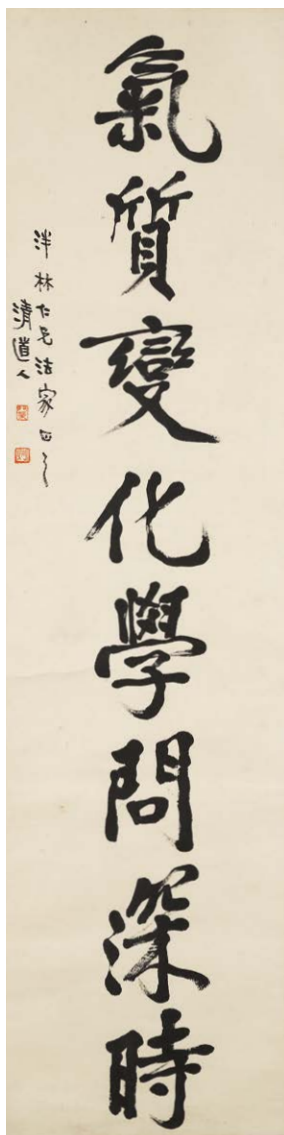 氣質變化學問深時
泮林仁兄法家正之
清道人